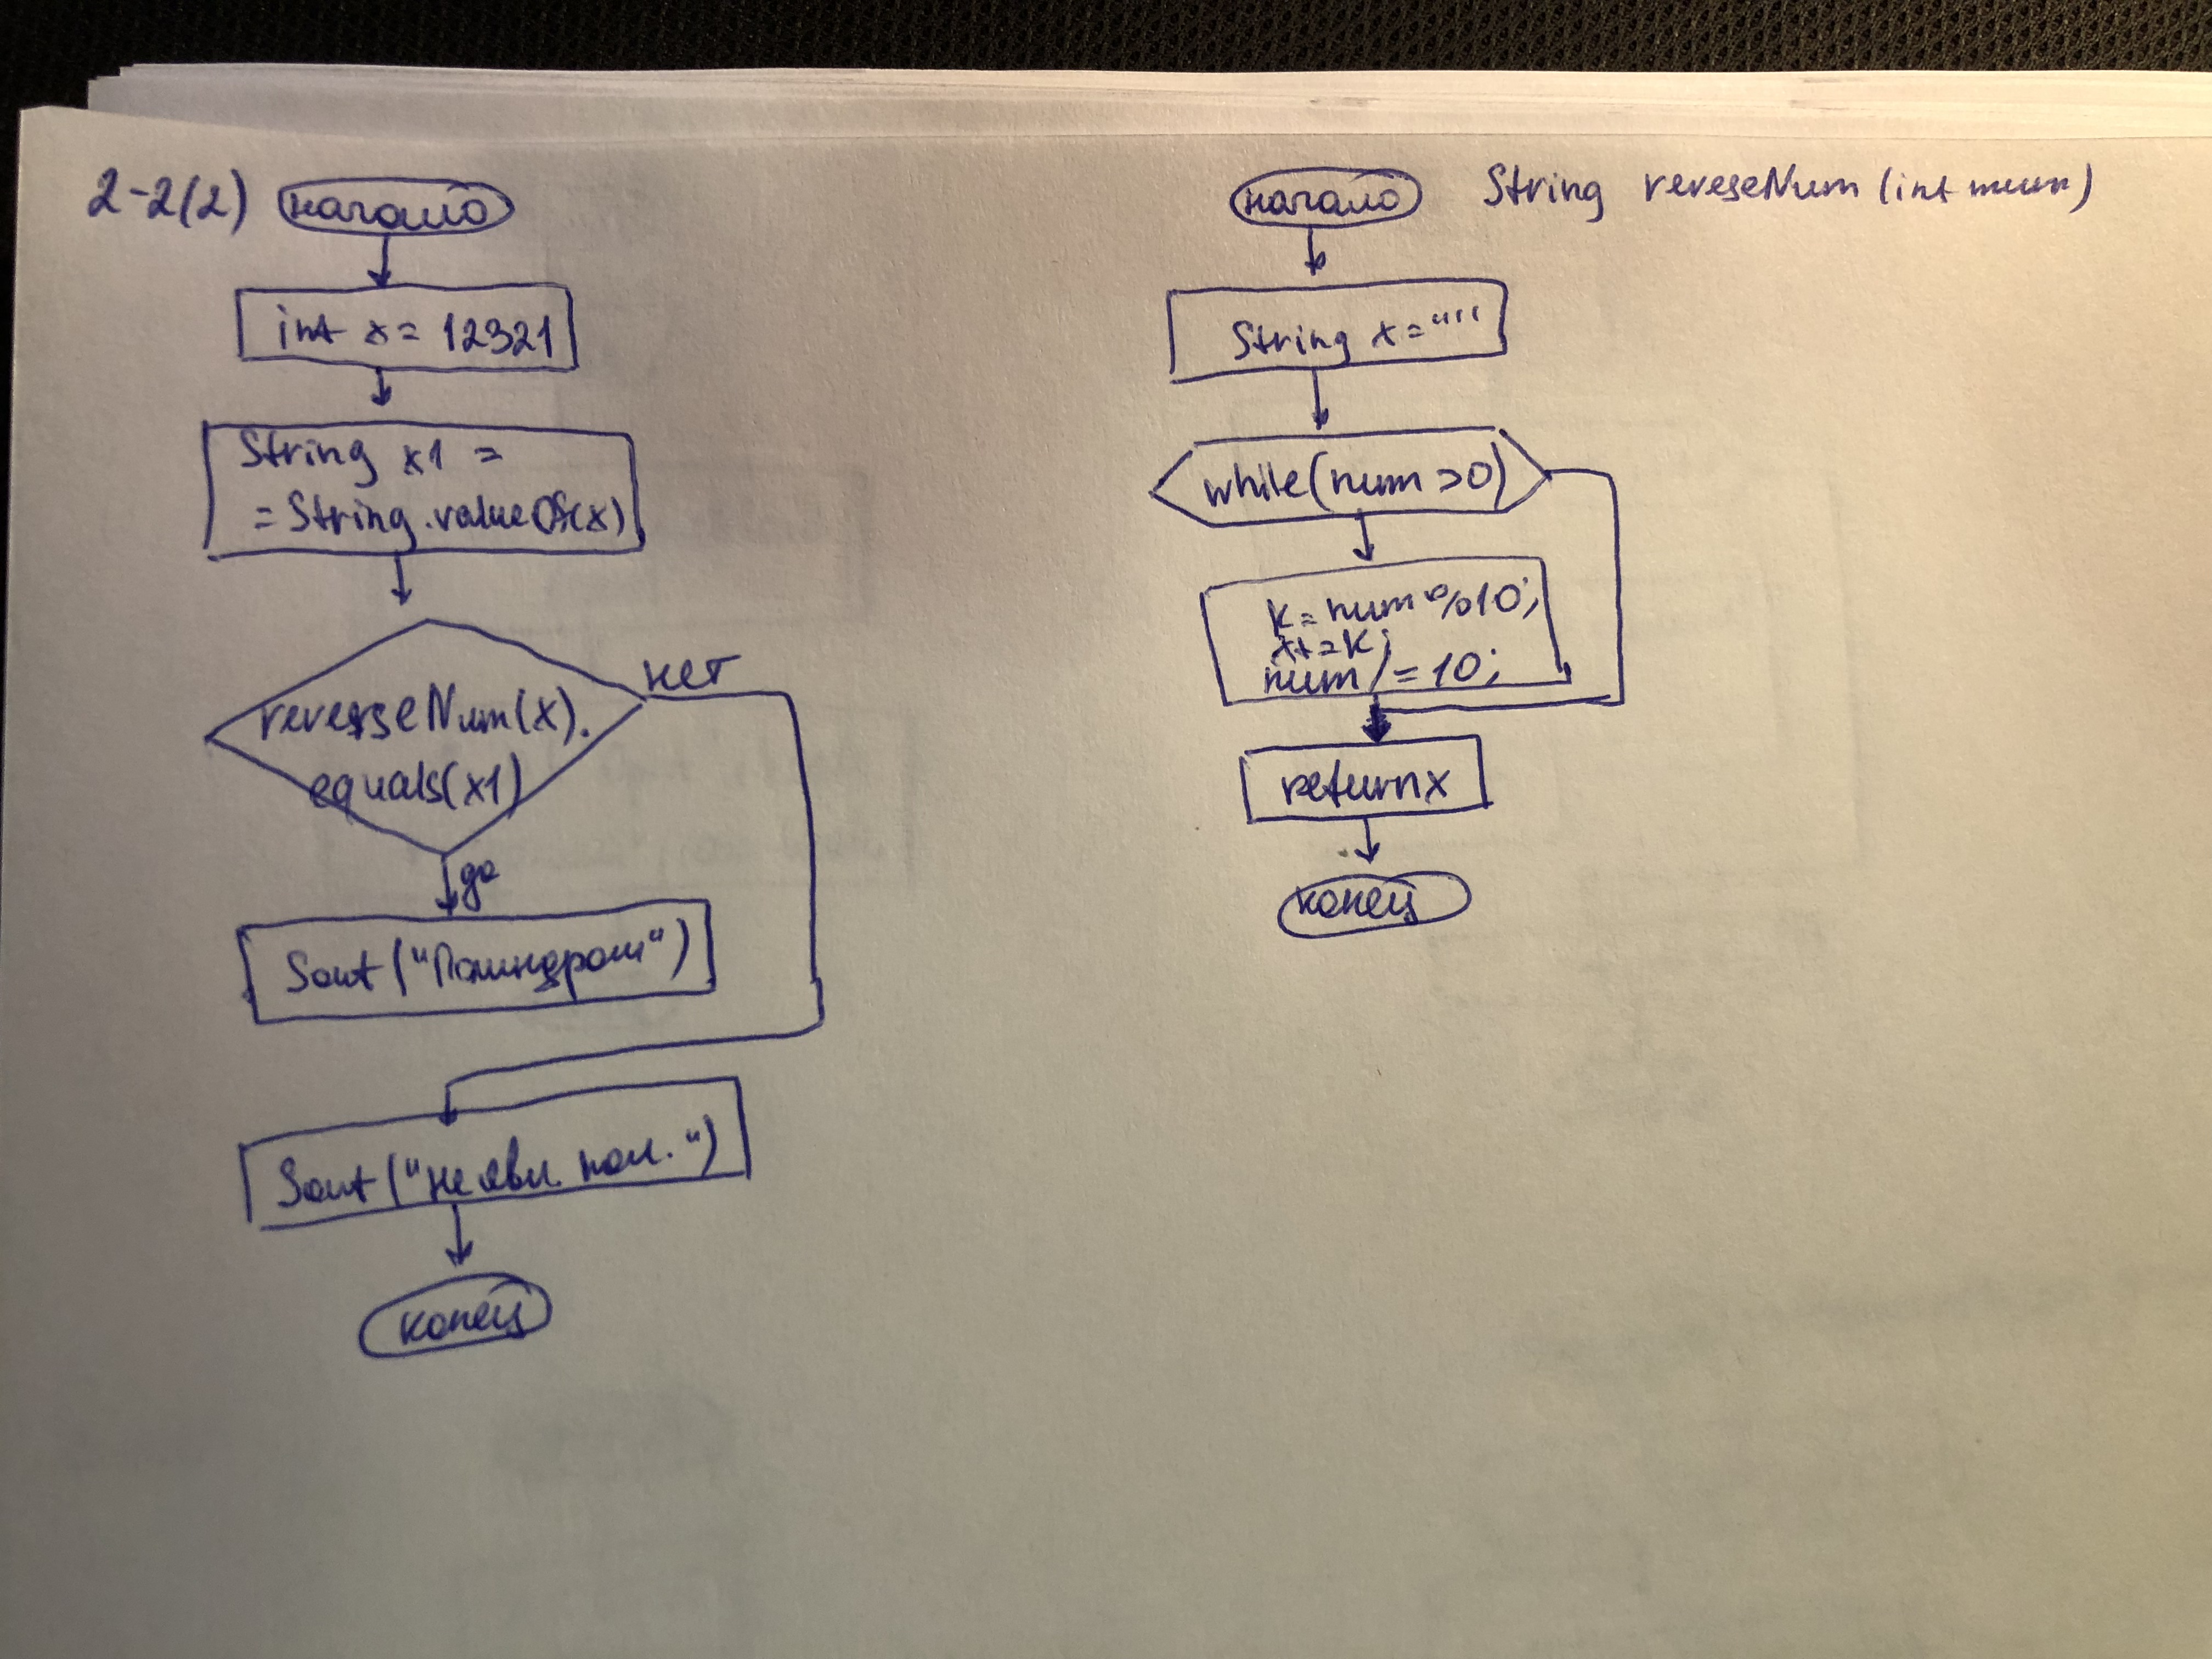 2-2(2) начало
int x = 12321
String x1 =
= String.valueOf(x)
reverseNum(x).
equals(x1)
нет
да
Sout("Палиндром")
Sout("не явл. пал.")
конец
начало String reveseNum (int num)
String x = ""
while(num>0)
k = num%10;
x+=k;
num/=10;
return x
конец